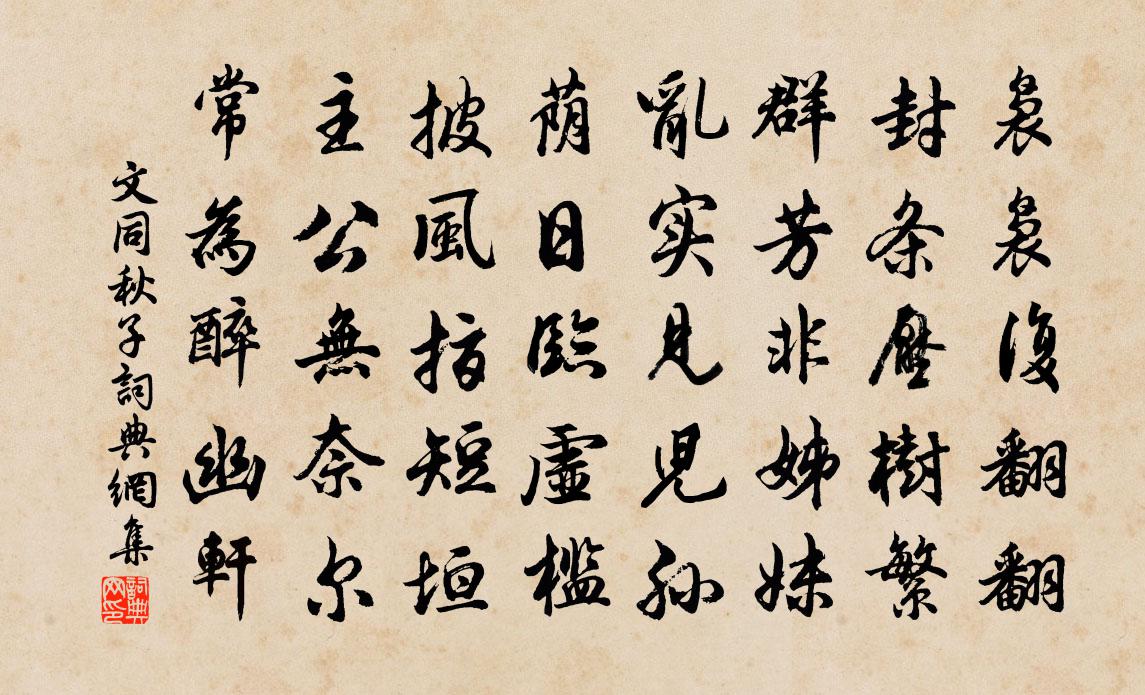 裊裊復翻翻
封条壓樹繁
群芳非姊妹
亂实見児孙
荫日臨虛檻
披風指短垣
主公無奈尔
常為醉幽軒
文同秋子詞典網集
詞典网印